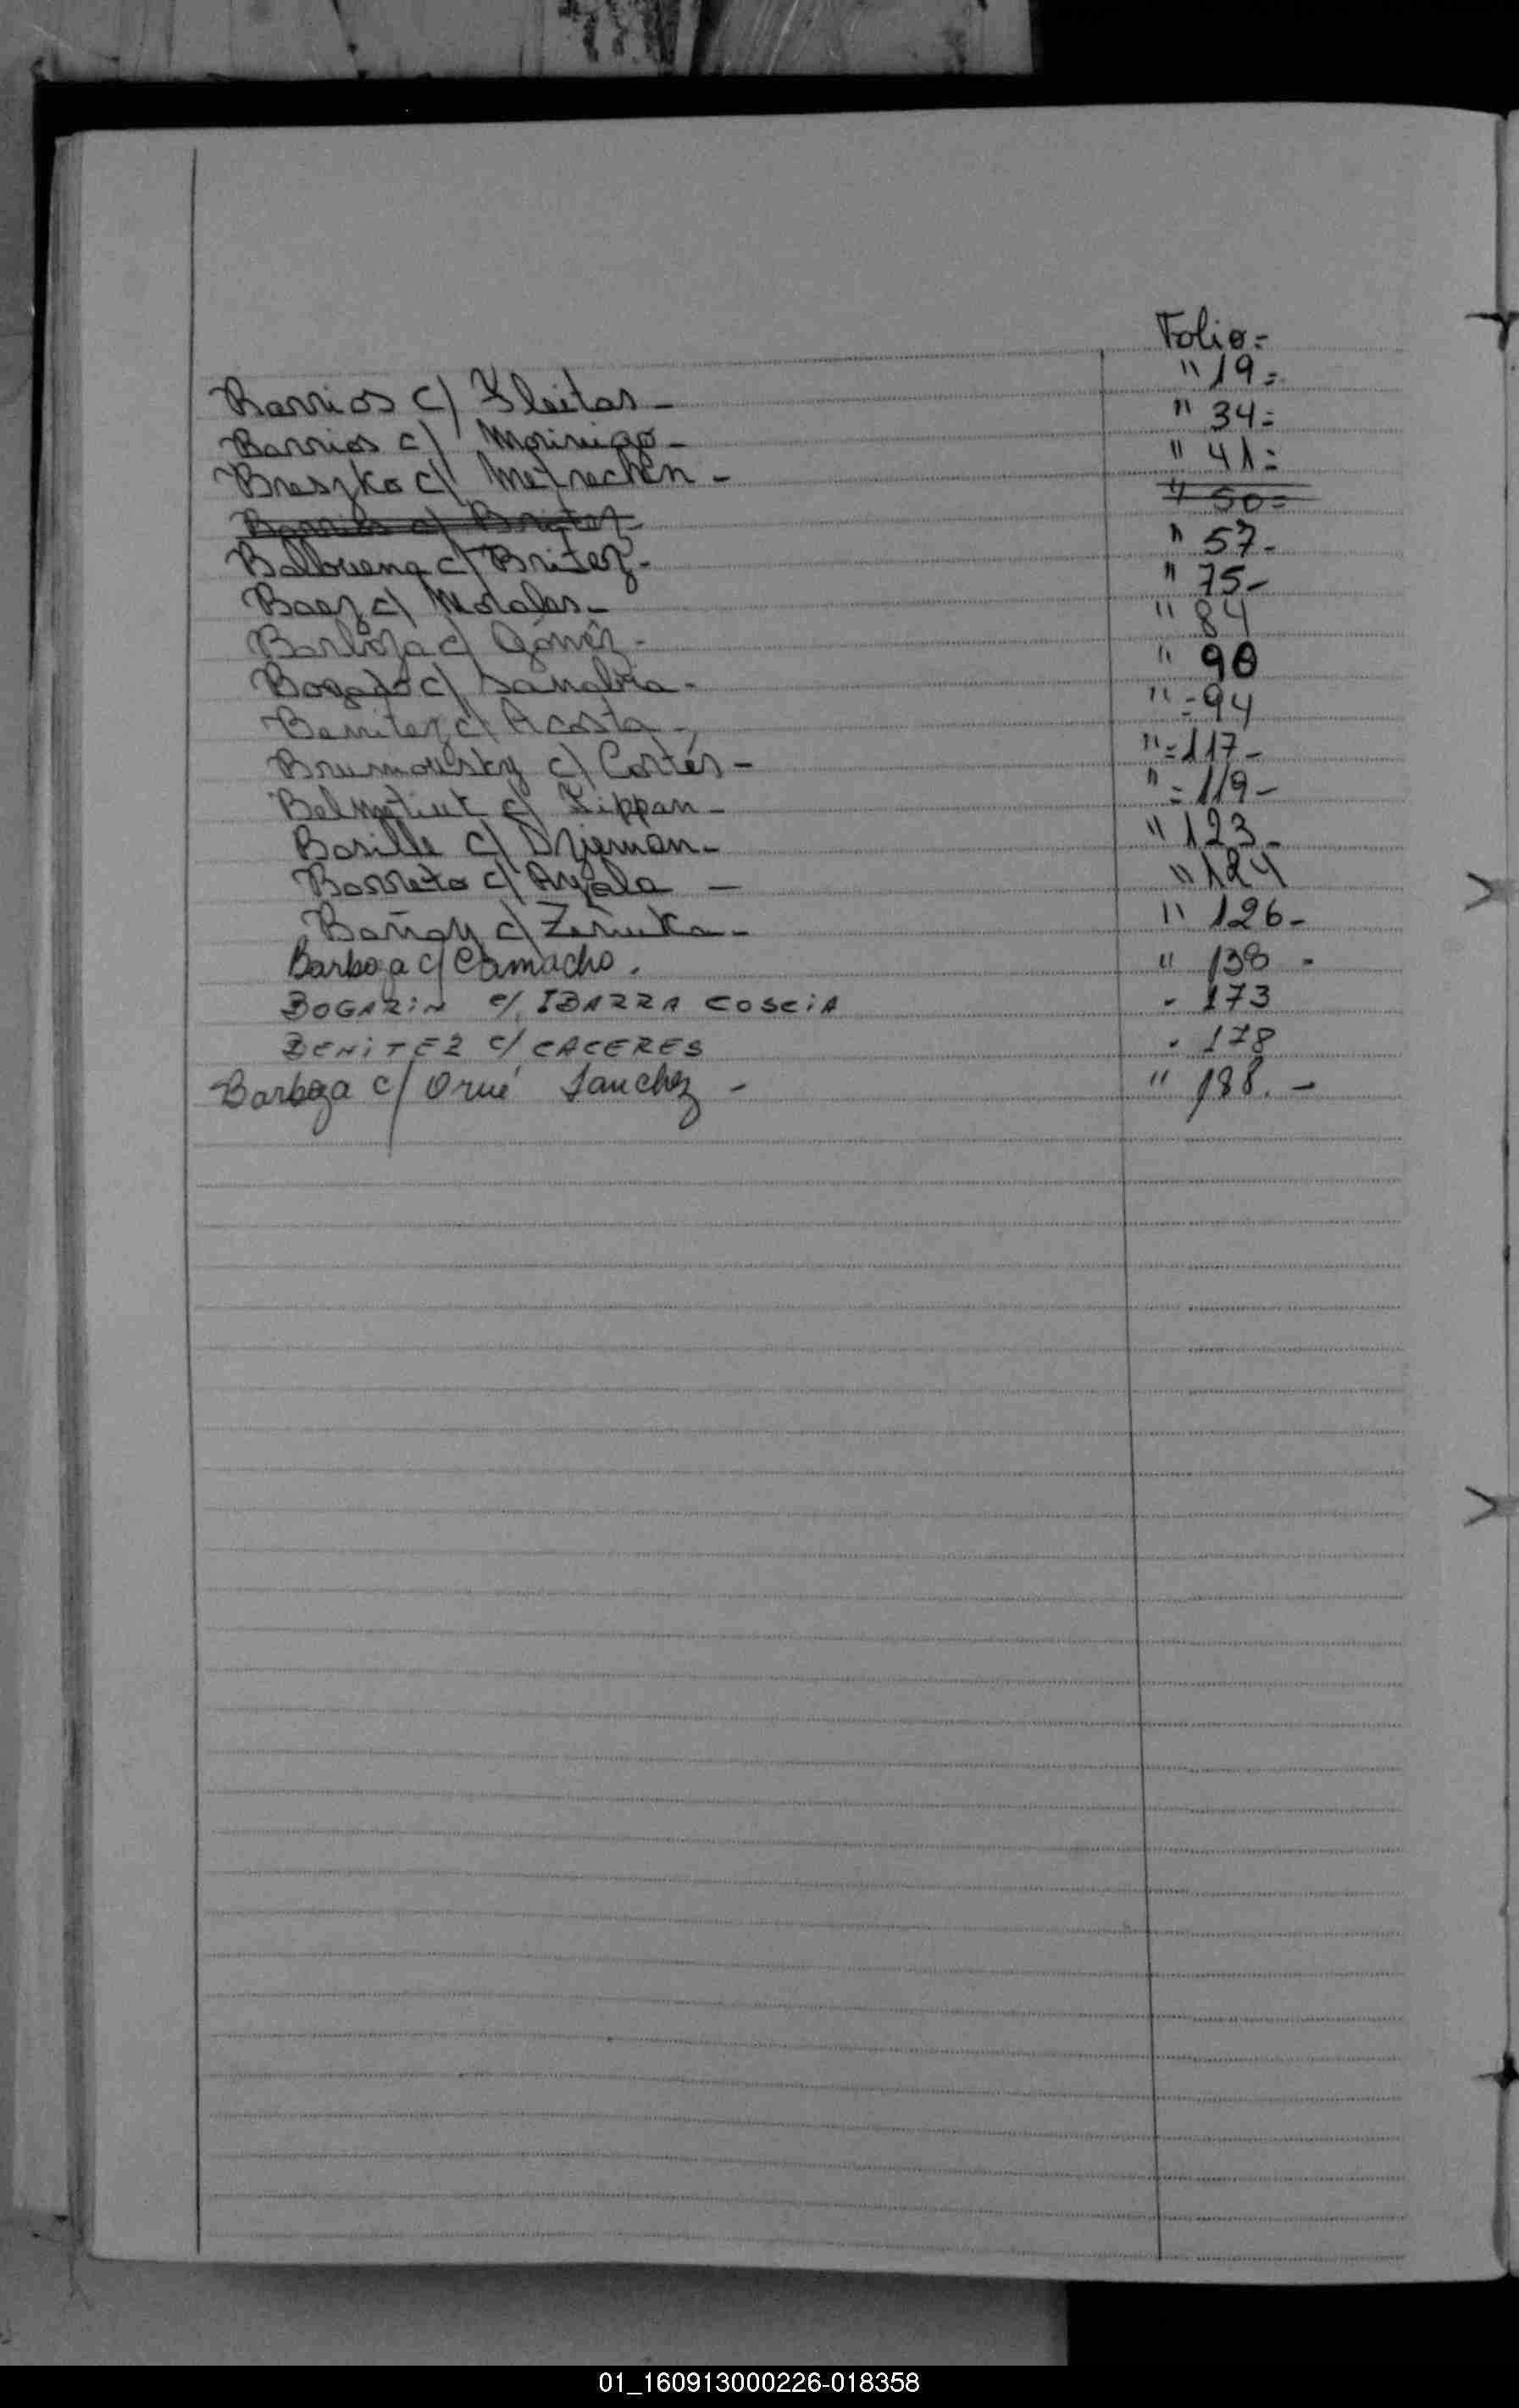 Folio=
Barrios c/ Fleitas - " 19=
Barrios c/ Morinigo - " 34=
Breszko c/ Metrechen - " 41=
Barrios c/ Britez " 50=
Balbuena c/ Britez - " 57-
Baez c/ Morales - " 75-
Barboza c/ Gómez - " 84
Bogado c/ Sanabria - " 90
Benitez c/ Acosta - " =94
Brumovsky c/ Cortés - " =117-
c/ Lippan - " =119-
Basille c/ - " 123-
Barreto c/ Ayala - " 124
c/ - " 126-
Barboza c/ Camacho. " 138 -
BOGARIN c/ IBARRA COSCIA - 173
BENITEZ c/ CACERES - 178
Barboza c/ Orué Sanchez - " 188.-
01_160913000226-018358